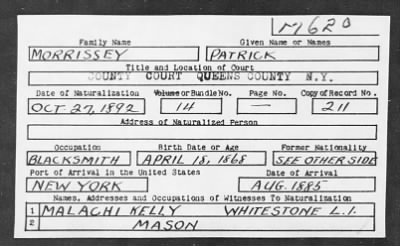 M620
Family Name Given Name or Names
MORRISSEY PATRICK
Title and Location of Court
COUNTY COURT QUEENS COUNTY N.Y.
Date of Naturalization Volume or Bundle No. Page No. Copy of Record No.
OCT. 27, 1892 14 — 211
Address of Naturalized Person
Occupation Birth Date or Age Former Nationality
BLACKSMITH APRIL 18, 1868 SEE OTHER SIDE
Port of Arrival in the United States Date of Arrival
NEW YORK AUG. 1885
Names, Addresses and Occupations of Witnesses To Naturalization
1 MALACHI KELLY WHITESTONE L.I.
2 MASON